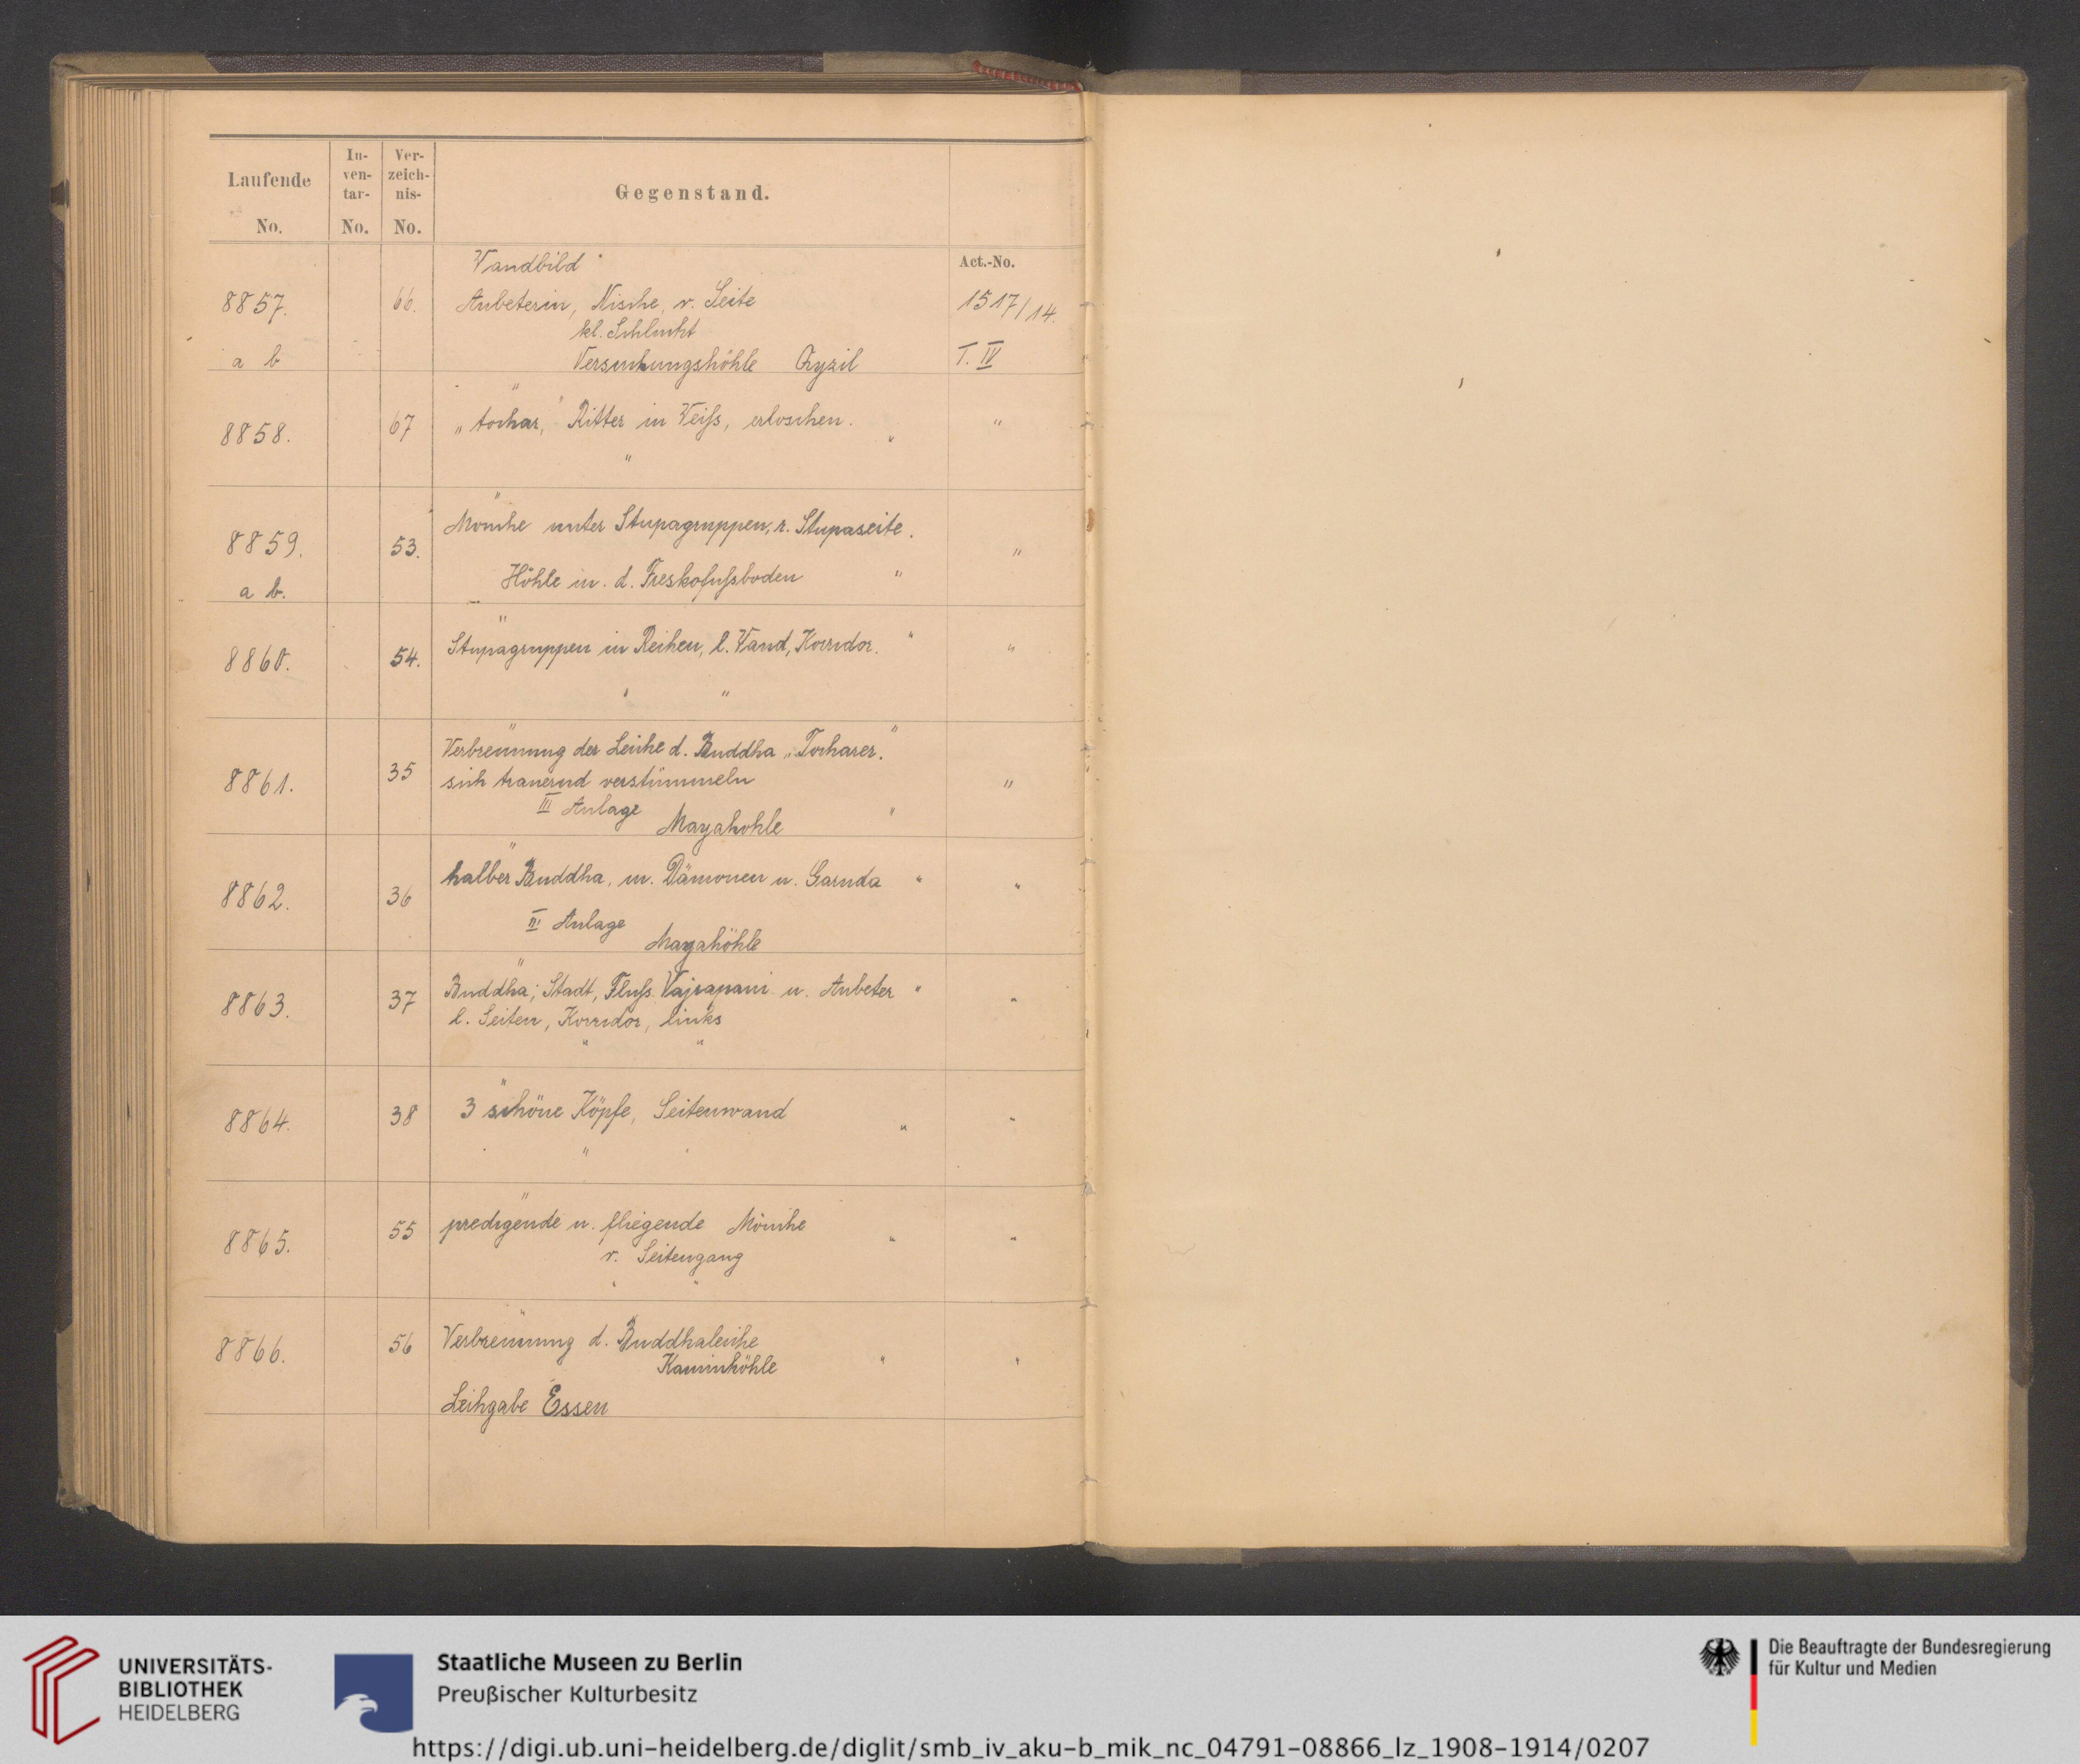 Laufende No.
In-ven-tar- No.
Ver-zeich-nis- No.
Gegenstand.
Act.-No.
Wandbild
8857. 66. Anbeterin, Nische, r. Seite 1517/14.
kl. Schlucht
a b Versenkungshöhle Qyzil T. IV
"
8858. 67 „tochar," Ritter in Weiſs, erloschen. " "
"
"
Mönche unter Stupagruppen, r. Stupaseite.
8859. 53. "
a b. Höhle m. d. Freskofuſsboden "
"
8860. 54. Stupagruppen in Reihen, l. Wand, Korridor. " "
" "
"
Verbrennung der Leiche d. Buddha „Tocharer"
8861. 35 sich trauernd verstümmeln "
III Anlage
Mayahohle "
"
8862. 36 halber Buddha, m. Dämonen u. Garuda " "
III Anlage
Mayahöhle
"
8863. 37 Buddha; Stadt, Fluſs Vajrapani u. Anbeter " "
l. Seiten, Korridor, links
" "
"
8864. 38 3 schöne Köpfe, Seitenwand " "
" "
"
8865. 55 predigende u. fliegende Mönche " "
r. Seitengang
" "
"
8866. 56 Verbrennung d. Buddhaleiche
Kaminhöhle " "
Leihgabe Essen
UNIVERSITÄTS-
BIBLIOTHEK
HEIDELBERG
Staatliche Museen zu Berlin
Preußischer Kulturbesitz
Die Beauftragte der Bundesregierung
für Kultur und Medien
https://digi.ub.uni-heidelberg.de/diglit/smb_iv_aku-b_mik_nc_04791-08866_lz_1908-1914/0207